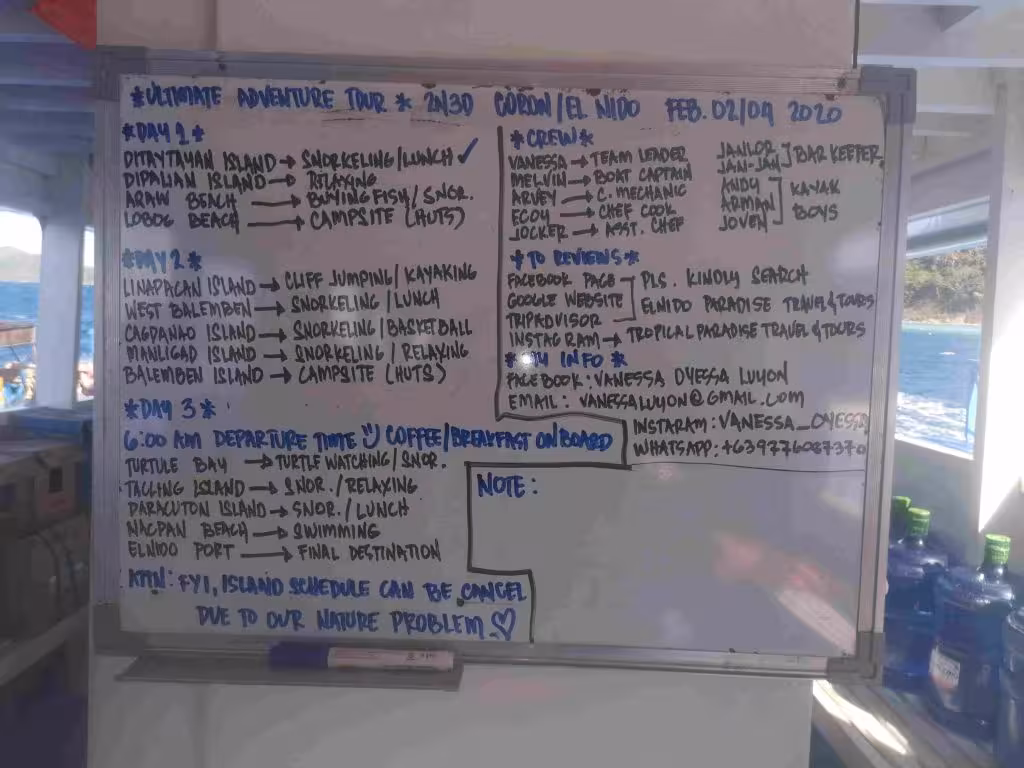 *ULTIMATE ADVENTURE TOUR * 2N3D CORON/EL NIDO FEB. 02/04 2020
*DAY 1*
DITAYTAYAN ISLAND → SNORKELING/LUNCH ✓
DIPALIAN ISLAND → RELAXING
ARAW BEACH → BUYING FISH/SNOR.
LOBOG BEACH → CAMPSITE (HUTS)
*DAY 2*
LINAPACAN ISLAND → CLIFF JUMPING/KAYAKING
WEST BALEMBEN → SNORKELING/LUNCH
CAGPANAO ISLAND → SNORKELING/BASKETBALL
MANLIGAD ISLAND → SNORKELING/RELAXING
BALEMBEN ISLAND → CAMPSITE (HUTS)
*DAY 3*
6:00 AM DEPARTURE TIME COFFEE/BREAKFAST ON BOARD
TURTULE BAY → TURTLE WATCHING/SNOR.
TAGLING ISLAND → SNOR./RELAXING
DARACUTON ISLAND → SNOR./LUNCH
NACPAN BEACH → SWIMMING
ELNIDO PORT → FINAL DESTINATION
ATTN: FYI, ISLAND SCHEDULE CAN BE CANCEL
DUE TO OUR NATURE PROBLEM ♡
*CREW*
VANESSA → TEAM LEADER
MELVIN → BOAT CAPTAIN
ARVEY → C. MECHANIC
ECOY → CHEF COOK
JOCKER → ASST. CHEF
JANLOR
JAN-JAN ] BAR KEEPER
ANDY
ARMAN ] KAYAK
JOVEN BOYS
*TO REVIEWS*
FACEBOOK PAGE PLS. KINDLY SEARCH
GOOGLE WEBSITE ELNIDO PARADISE TRAVEL & TOURS
TRIPADVISOR
INSTAGRAM → TROPICAL PARADISE TRAVEL & TOURS
* MY INFO *
FACEBOOK: VANESSA OYESSA LUYON
EMAIL: VANESSALUYON@GMAIL.COM
INSTARAM: VANESSA_OYESSA
WHATSAPP: +639776087370
NOTE: